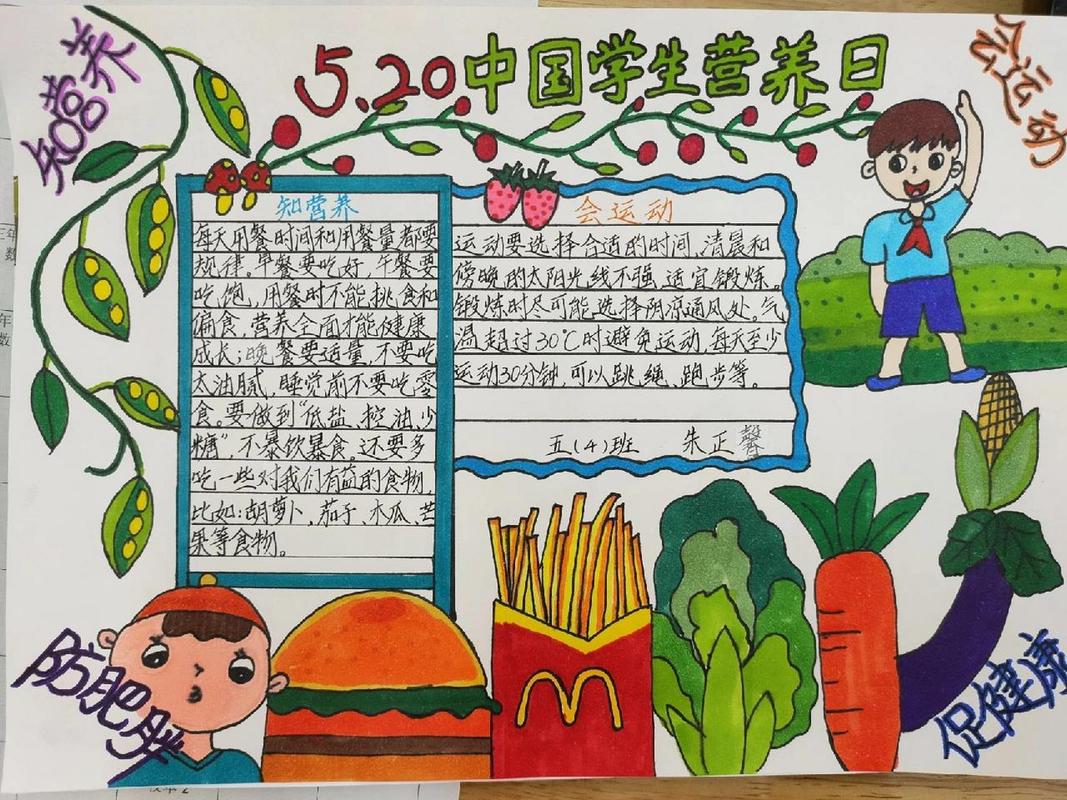 知营养
5.20中国学生营养日
会运动
知营养
每天用餐时间和用餐量都要
规律。早餐要吃好，午餐要
吃饱，用餐时不能挑食和
偏食，营养全面才能健康
成长；晚餐要适量，不要吃
太油腻，睡觉前不要吃零
食。要做到“低盐、控油、少
糖”，不暴饮暴食。还要多
吃一些对我们有益的食物，
比如：胡萝卜，茄子、木瓜、芒
果等食物。
会运动
运动要选择合适的时间，清晨和
傍晚的太阳光线不强，适宜锻炼。
锻炼时尽可能选择阴凉通风处。气
温超过30℃时避免运动，每天至少
运动30分钟，可以跳绳，跑步等。
五（4）班 朱正馨
防肥胖
促健康